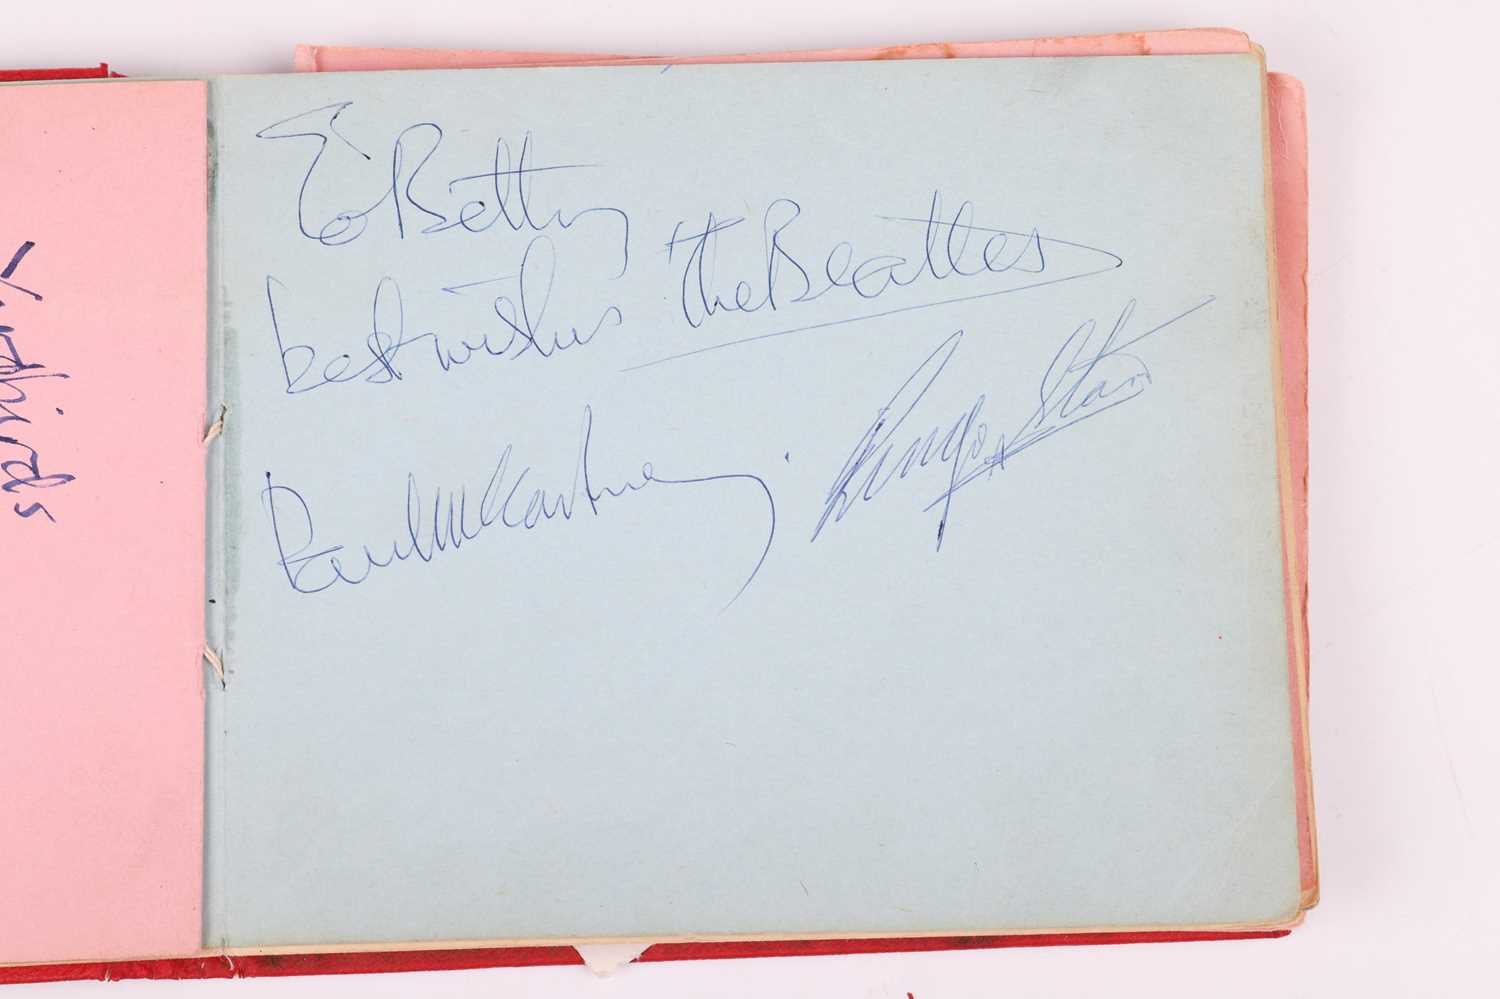 To Betty
best wishes The Beatles
Paul McCartney.
Ringo Starr
Yardbirds